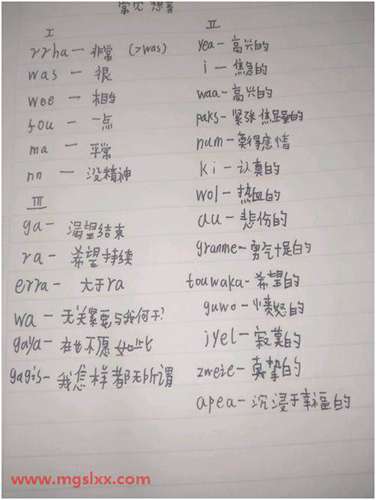 常见 想音
I
rrha — 非常 (>was)
was — 很
wee — 相当
fou — 一点
ma — 平常
nn — 没精神
III
ga — 渴望结束
ra — 希望持续
erra — 大于ra
wa — 无关紧要与我何干?
gaya — 在也不愿如此
gagis — 我怎样都无所谓
II
yea - 高兴的
i - 焦急的
waa - 高兴的
paks - 紧张 的
num - 莫得感情
ki - 认真的
wol - 热血的
au - 悲伤的
granme - 勇气 的
touwaka - 希望的
guwo - 愤怒的
jyel - 寂寞的
zweie - 真挚的
apea - 沉浸于幸福的
www.mgslxx.com